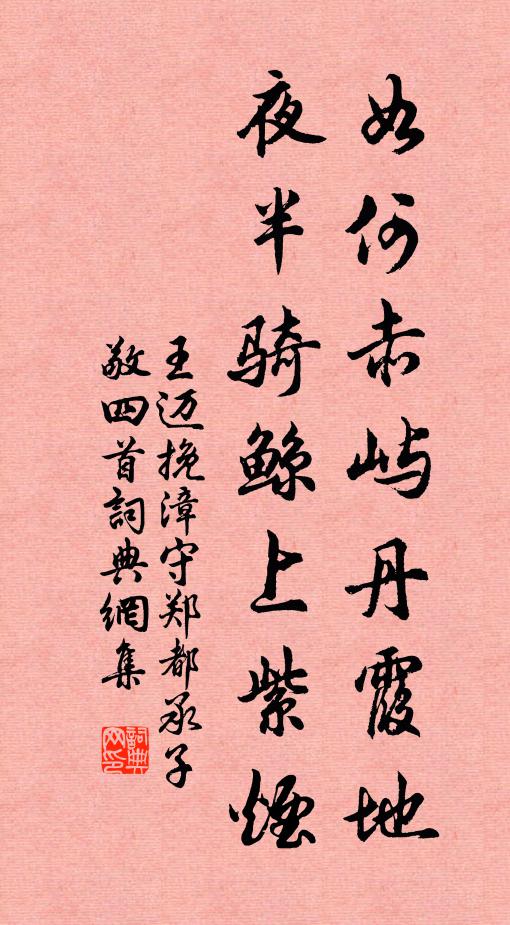 如何赤屿丹霞地
夜半骑鲸上紫烟
王迈挽漳守郑都承子
敬四首詞典網集
詞典网印